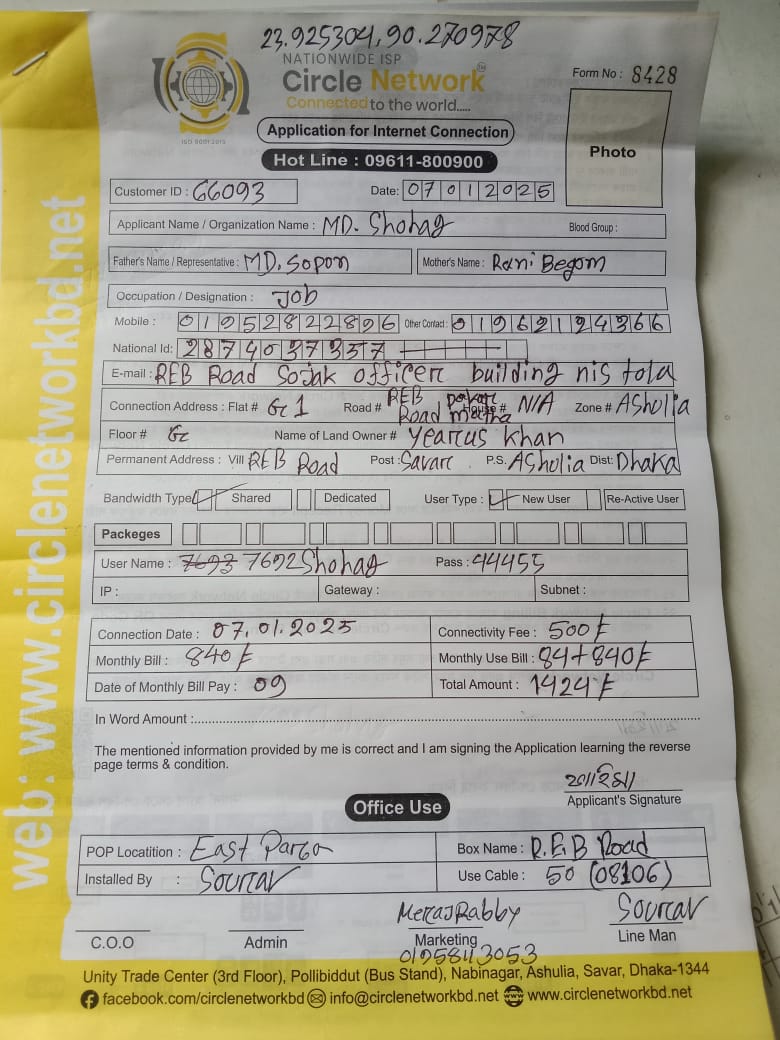 23.925304, 90.270978
NATIONWIDE ISP
Circle Network
Connected to the world.....
ISO 9001:2015
Form No : 8428
Application for Internet Connection
Photo
Hot Line : 09611-800900
Customer ID : 66093 Date: 07012025
Applicant Name / Organization Name : MD. Shohag Blood Group :
Father's Name / Representative : MD. Sopon Mother's Name : Rani Begom
Occupation / Designation : Job
Mobile : 01952822896 Other Contact : 01962124366
National Id: 2874037357
E-mail : REB Road Sojak officer building nis tola
Connection Address : Flat # G1 Road # REB Road matha House # N/A Zone # Asholia
Floor # G Name of Land Owner # Yearus khan
Permanent Address : Vill REB Road Post : Savar P.S. Asholia Dist: Dhaka
Bandwidth Type Shared Dedicated User Type : New User Re-Active User
Packeges
User Name : 7693 7692Shohag Pass : 44455
IP : Gateway : Subnet :
Connection Date : 07.01.2025 Connectivity Fee : 500/-
Monthly Bill : 840/- Monthly Use Bill : 84+840/-
Date of Monthly Bill Pay : 09 Total Amount : 1424/-
In Word Amount :
The mentioned information provided by me is correct and I am signing the Application learning the reverse
page terms & condition.
Applicant's Signature
Office Use
POP Locatition : East Para Box Name : R.E.B Road
Installed By : Sourav Use Cable : 50 (08106)
MerajRabby Sourav
C.O.O Admin Marketing Line Man
01958113053
Unity Trade Center (3rd Floor), Pollibiddut (Bus Stand), Nabinagar, Ashulia, Savar, Dhaka-1344
facebook.com/circlenetworkbd info@circlenetworkbd.net www.circlenetworkbd.net
web: www.circlenetworkbd.net